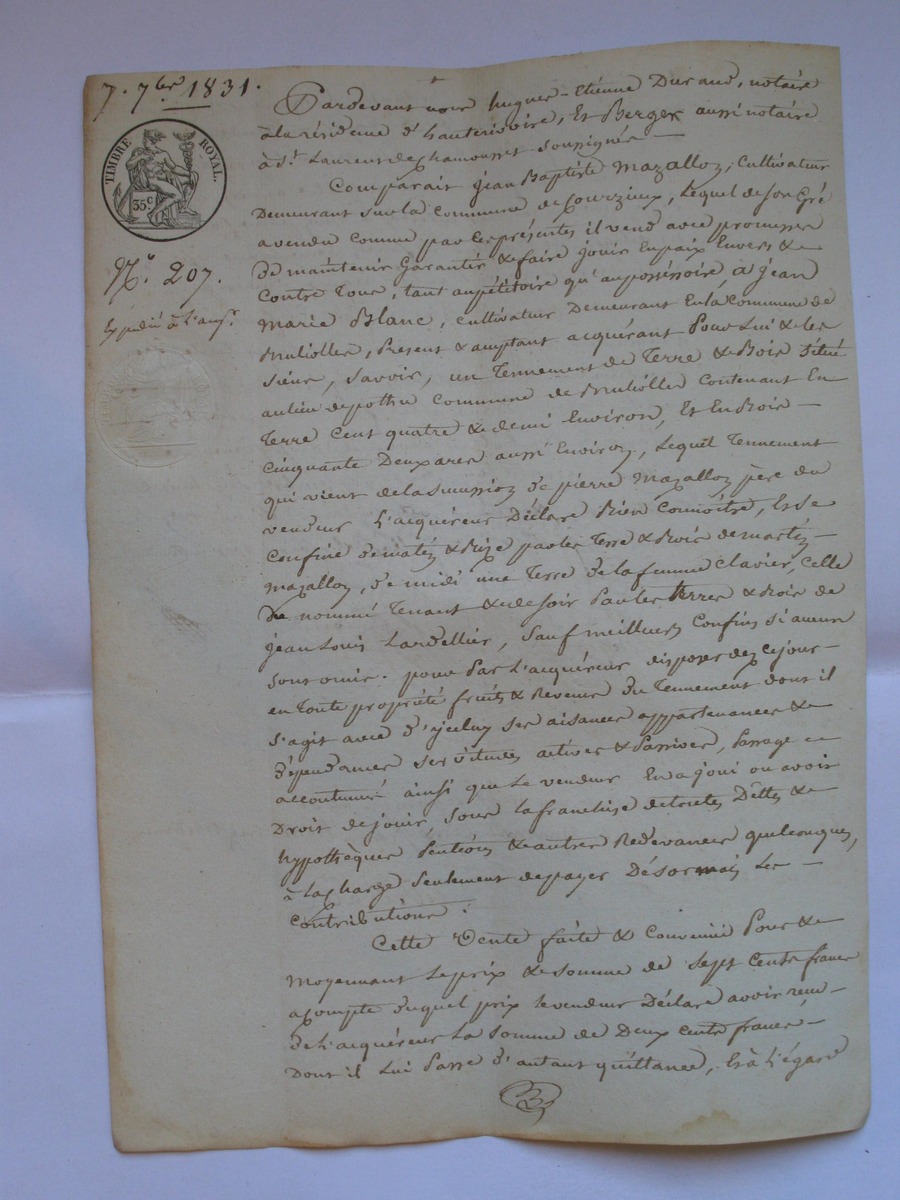 7. 7bre 1831.
TIMBRE ROYAL.
35c
No. 207.
Expédié à l'acqr.
Pardevant nous hugues-Etienne Durand, notaire
à la résidence d'hauterivoire, Et Berger aussi notaire
à St. Laurent de Chamousset soussignés —
Comparait jean Baptiste Mazallon, cultivateur
Demeurant sur la commune de Courzieux, Lequel de son Gré
a vendu comme par les présentes il vend avec promesse
de maintenir Garantir & faire jouir En paix Envers &
Contre Tous, tant au pétitoire qu'au possessoire, à jean
Marie Blanc, cultivateur Demeurant En la commune de
Brulliolles, Present & acceptant acquérant Pour Lui & les
siens, savoir, un Tennement de Terre & Bois situé
au lieu de pothu commune de Brulliolles Contenant En
Terre Cent quatre & demi Environ, Et En Bois —
Cinquante Deux ares aussi Environ, Lequel Tennement
qui vient de la succession de pierre Mazallon père du
vendeur L'acquéreur Déclare Bien Connoitre, Et se
Confine de matin & Bize par les Terre & Bois de
Mazallon, de midi une Terre de la femme Clavier, Celle
nommé Tenant & de soir Par les terres & Bois de
jean Louis Lardellier, Sauf meilleurs Confins si aucun
sont omis. pour Par L'acquéreur disposer dez ce jour —
en Toute propriété fruits & Revenus du Tennement dont il
s'agit avec d'ycelui ses aisances appartenances &
dépendances servitudes actives & Passives, Passage
accoutumé ainsi que Le vendeur En a joui ou avoir
Droit de jouir, sous la franchise de toutes Dettes &
hypothèques Pentions & autres Redevances quelconques,
à la Charge seulement de payer Désormais Les —
Contributions.
Cette Vente faite & Convenue Pour &
Moyennant Le prix & somme de sept Cents francs
acompte duquel prix le vendeur Déclare avoir recu —
de L'acquéreur La somme de Deux cents francs —
Dont il Lui Passe d'autant quittance, Et à L'égard